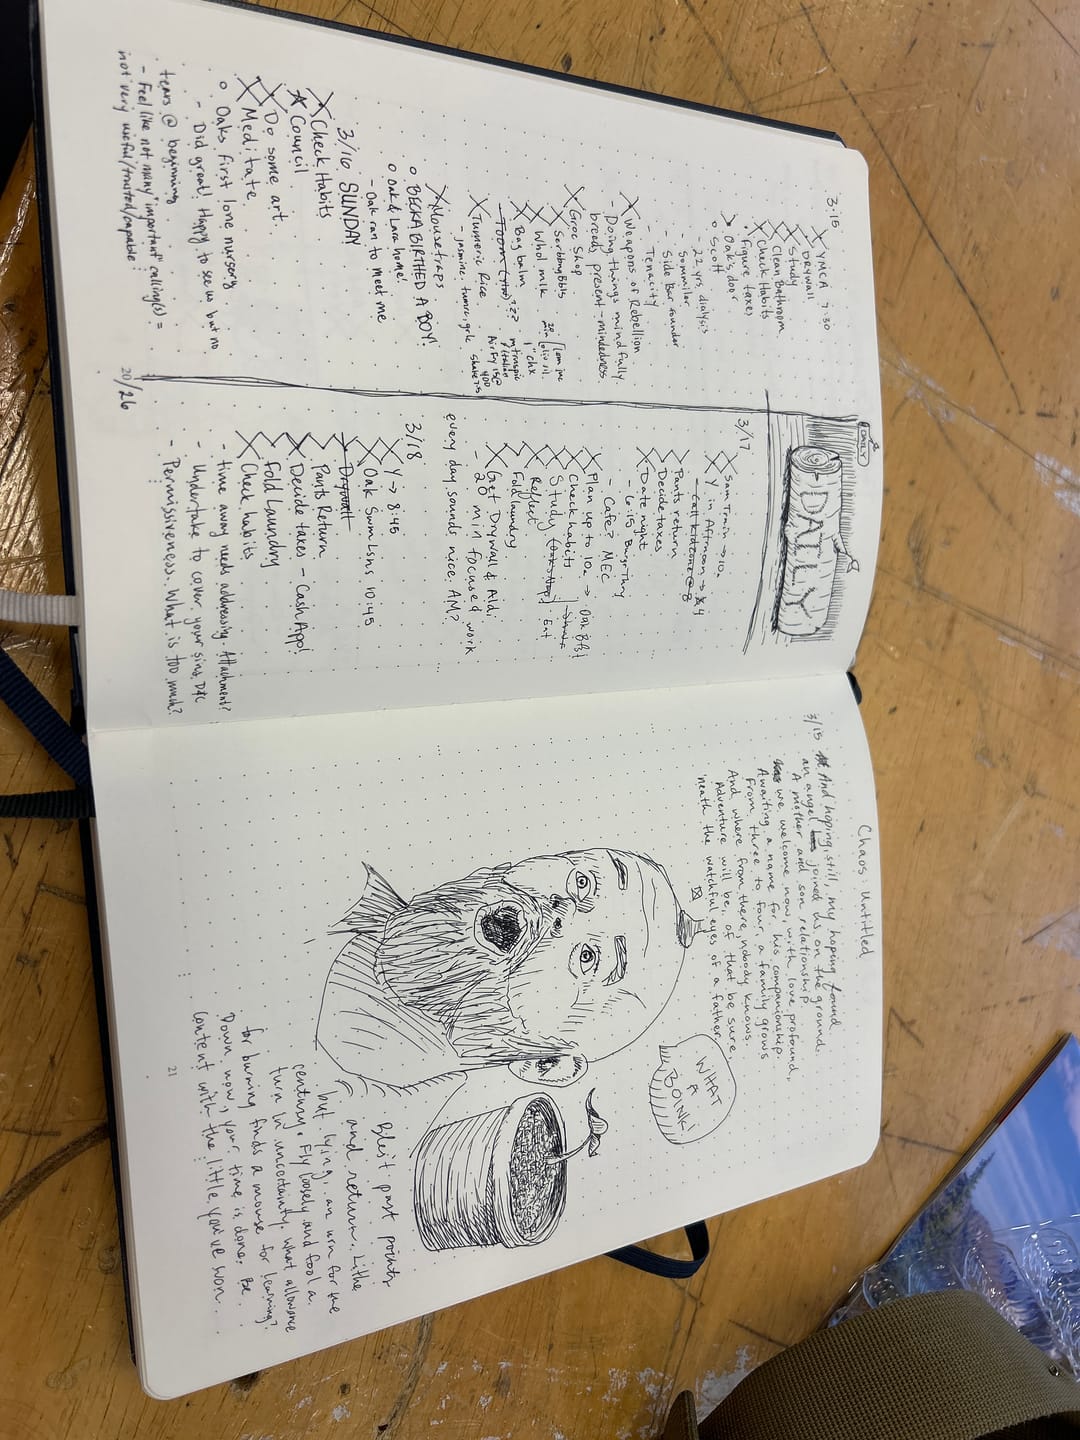 DAILY
DAILY
3.15
X YMCA 7:30
X DRYWALL
X Study
X Clean Bathroom
X Check Habits
X Figure taxes
Oak's door
o Scott
- 22 yrs. dialysis
- Sommilar
- Side Bar founder
- Tenacity
X Weapons of Rebellion
- Doing things mindfully
breeds present-mindedness
X Groc Shop
X Scrbbng Bbls
X Whol milk
X Bag balm
X Tumeric Rice
- jasmine, tumrc, grlc
X Mousetraps
o BECKA BIRTHED A BOY!
o Oak & Lara home!
- Oak ran to meet me
3/16 SUNDAY
X Check Habits
★ Council
X Do some art
X Meditate
o Oaks first lone nursery
- Did great! Happy to see us but no
tears @ beginning
- Feel like not many "important" calling(s) =
not very useful/trusted/capable?
20/26
3/17
X Sam Train → 10a
X Y in Afternoon → 4
- Call kidzone @ 8
X Pants return
X Decide taxes
X Date night
- 6:15 Bwgr Thry
- Cafe? MEC
X Plan up to 10a → Oak BFst
X Check habits
X Study
Eat
X Reflect
X Fold laundry
X Get Drywall & Aid!
- 20 min focused work
every day sounds nice. AM?
3/18
X Y → 8:45
X Oak Swim Lsns 10:45
X Drywall
X Pants Return
X Decide taxes - Cash App!
X Fold Laundry
X Check habits
- time away needs addressing. Attachment?
- Undertake to cover your sins. D&C
- Permissiveness. What is too much?
Chaos: Untitled
3/15 And hoping, still, my hoping found
an angel joined us on the ground.
A mother and son relationship
we welcome now, with love profound,
Awaiting a name for his companionship.
From three to four, a family grows
And where from there, nobody knows.
Adventure will be, of that be sure,
neath the watchful eyes of a father.
WHAT
A
BOINK!
Bleit past points
and return. Lithe
but lying, an urn for the
century. Fly loosely and fool a
turn by uncertainty. What allowance
for burning finds a mouse for learning?
Down now, your time is done. Be
content with the little you've won.
21